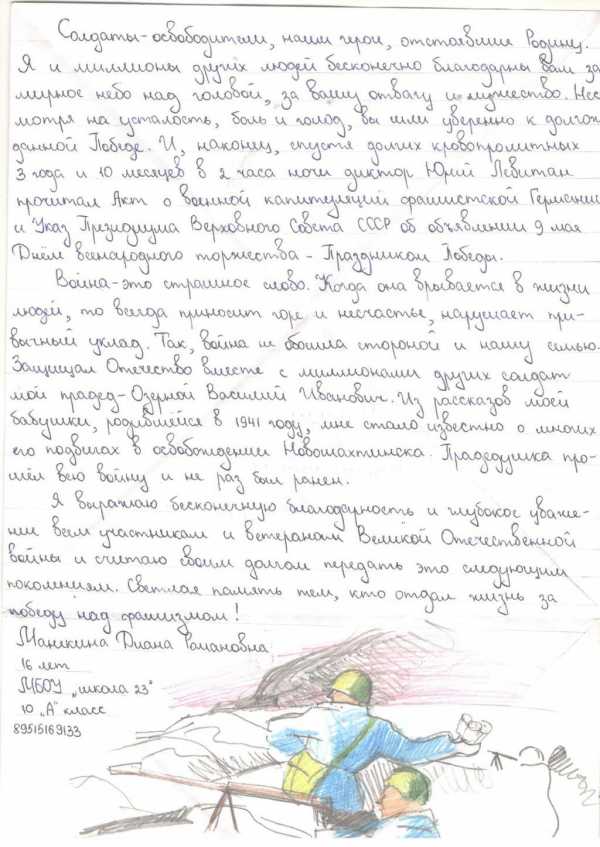 Солдаты-освободители, наши герои, отстоявшие Родину.
Я и миллионы других людей бесконечно благодарны вам за
мирное небо над головой, за вашу отвагу и мужество. Нес
мотря на усталость, боль и голод, вы шли уверенно к долгож
данной Победе. И, наконец, спустя долгих кровопролитных
3 года и 10 месяцев в 2 часа ночи диктор Юрий Левитан
прочитал Акт о военной капитуляций фашистской Германии
и Указ Президиума Верховного Совета СССР об объявлении 9 мая
Днём всенародного торжества - Праздником Победы.
Война-это страшное слово. Когда она врывается в жизни
людей, то всегда приносит горе и несчастье, нарушает при-
вычный уклад. Так, война не обошла стороной и нашу семью.
Защищал Отечество вместе с миллионами других солдат
мой прадед-Озерной Василий Иванович. Из рассказов моей
бабушки, родившейся в 1941 году, мне стало известно о многих
его подвигах в освобождении Новошахтинска. Прадедушка про-
шёл всю войну и не раз был ранен.
Я выражаю бесконечную благодарность и глубокое уваже-
ние всем участникам и ветеранам Великой Отечественной
войны и считаю своим долгом передать это следующим
поколениям. Светлая память тем, кто отдал жизнь за
победу над фашизмом!
Маникина Диана Романовна
16 лет
МБОУ „школа 23"
10 „А" класс
89515169133